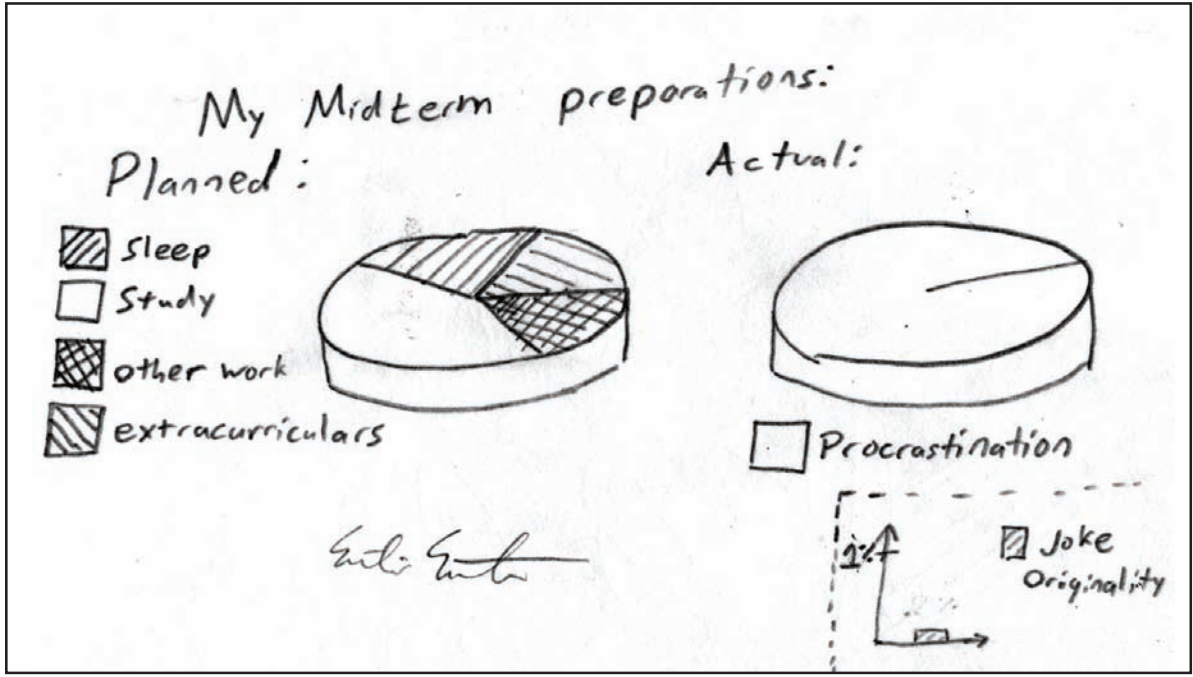 My Midterm preparations:
Planned:
Sleep
Study
other work
extracurriculars
Actual:
Procrastination
1%
Joke
Originality